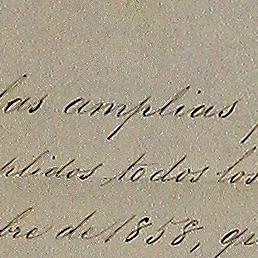 las amplias
plidos todos los
bre de 1858, qu